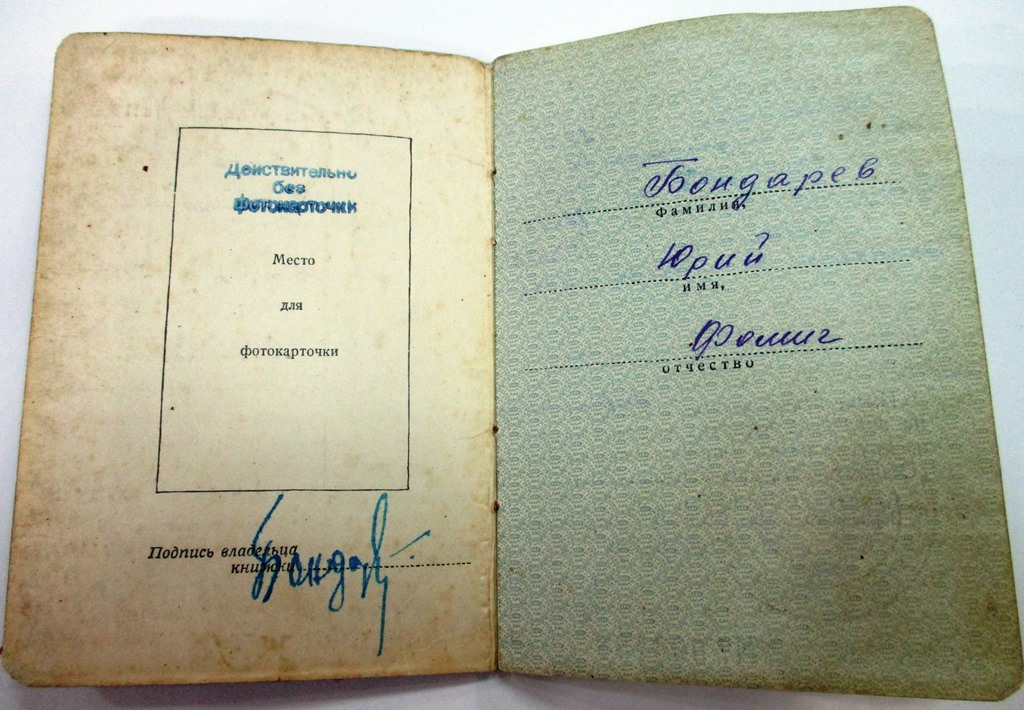 Действительно
без
фотокарточки
Место
для
фотокарточки
Подпись владельца
книжки
Бондарев
фамилия,
Юрий
имя,
Фомич
отчество